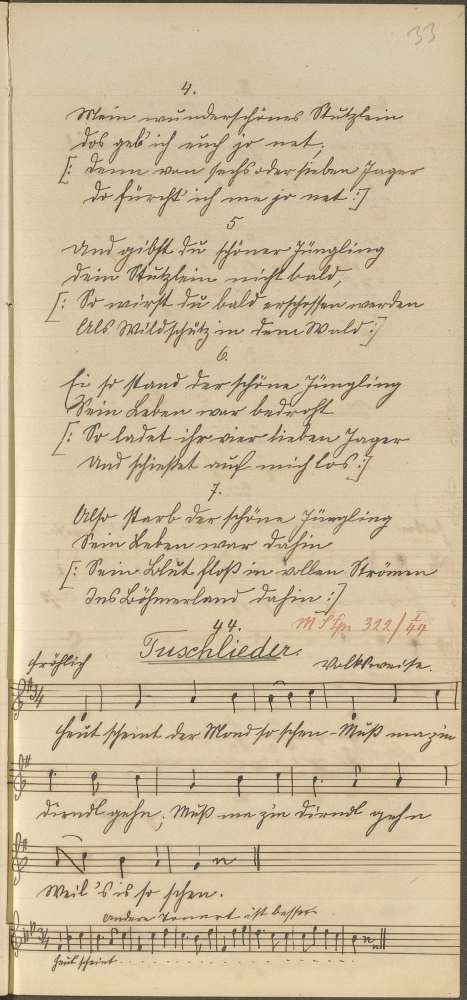 33
4.
Mein wunderschönes Stutzlein
das geb' ich euch jo net,
[: Denn von sechs oder sieben Jager
do fürcht' ich me jo net :]
5
Und gibst du schöner Jüngling
dein Stutzlein nicht bald,
[: So wirst du bald erschossen werden
Als Wildschütz in dem Wald :]
6.
Ei so stand der schöne Jüngling
Sein Leben war bedroht
[: So ladet ihr vier lieben Jager
Und schießet auf mich los :]
7.
Also starb der schöne Jüngling
Sein Leben war dahin
[: Sein Blut floß in vollen Strömen
Ins Böhmerland dahin :]
44.
322/I 44
Tuschlieder.
Fröhlich
Volksweise.
3/4
Heut scheint der Mond so schen - Muß ma zin
Dirndl gehn; Muß ma zin Dirndl gehn
Weil 's is so schen.
andere Tonart ist besser
3/4
Heut scheint . . . . . . . . . . . . . . . . . .